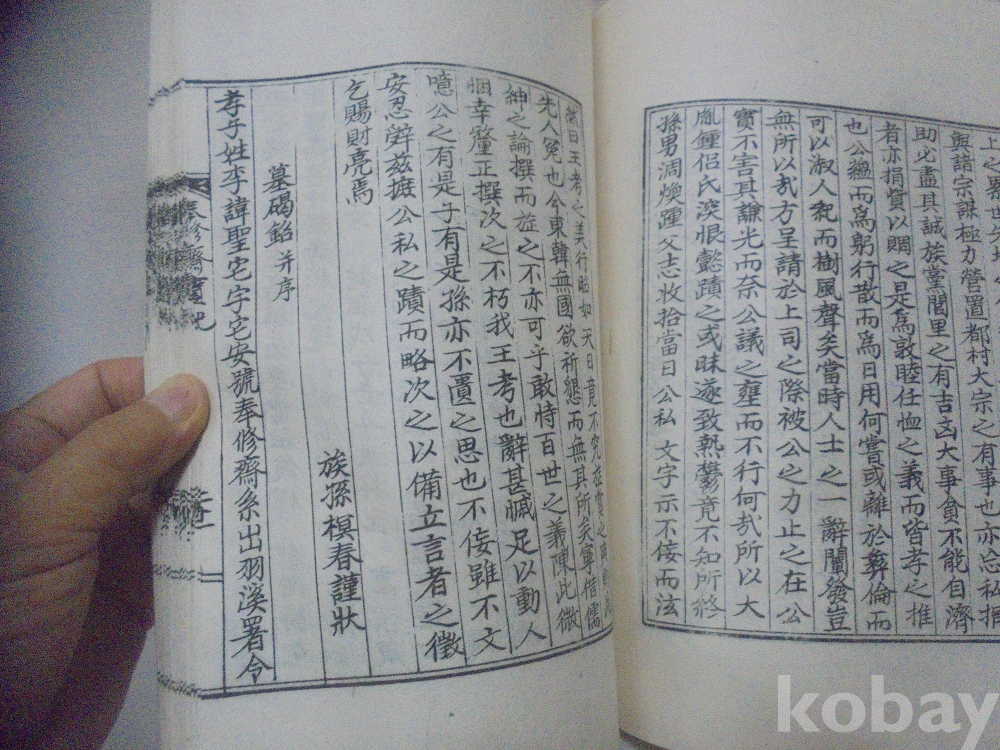 與諸宗謀極力營置都村大宗之有事也亦忘私捐
助必盡其誠族黨閭里之有吉凶大事貧不能自濟
者亦捐貲以賙之是爲敦睦任恤之義而皆孝之推
也公蘊而爲躬行散而爲日用何嘗或離於彝倫而
可以淑人範而樹風聲矣當時人士之一辭闡發豈
無所以哉方呈請於上司之際被公之力止之在公
實不害其謙光而奈公議之壅而不行何哉所以大
胤鍾侶氏深恨懿蹟之或昧遂致熱鬱竟不知所終
孫男淍煥踵父志收拾當日公私文字示不侫而泫
然曰王考之美行昭如天日竟不究旌賞之
先人冤也今東韓無國欲祈懇而無其所矣寧借儒
紳之論撰而旌之不亦可乎敢恃百世之義陳此微
悃幸釐正撰次之不朽我王考也辭甚慽足以動人
噫公之有是子有是孫亦不匱之思也不侫雖不文
安忍辭玆摭公私之蹟而略次之以備立言者之徵
乞賜財亮焉
族孫楨春謹狀
墓碣銘 并序
孝子姓李諱聖宅字宅安號奉修齋系出羽溪署令
奉修齋實記